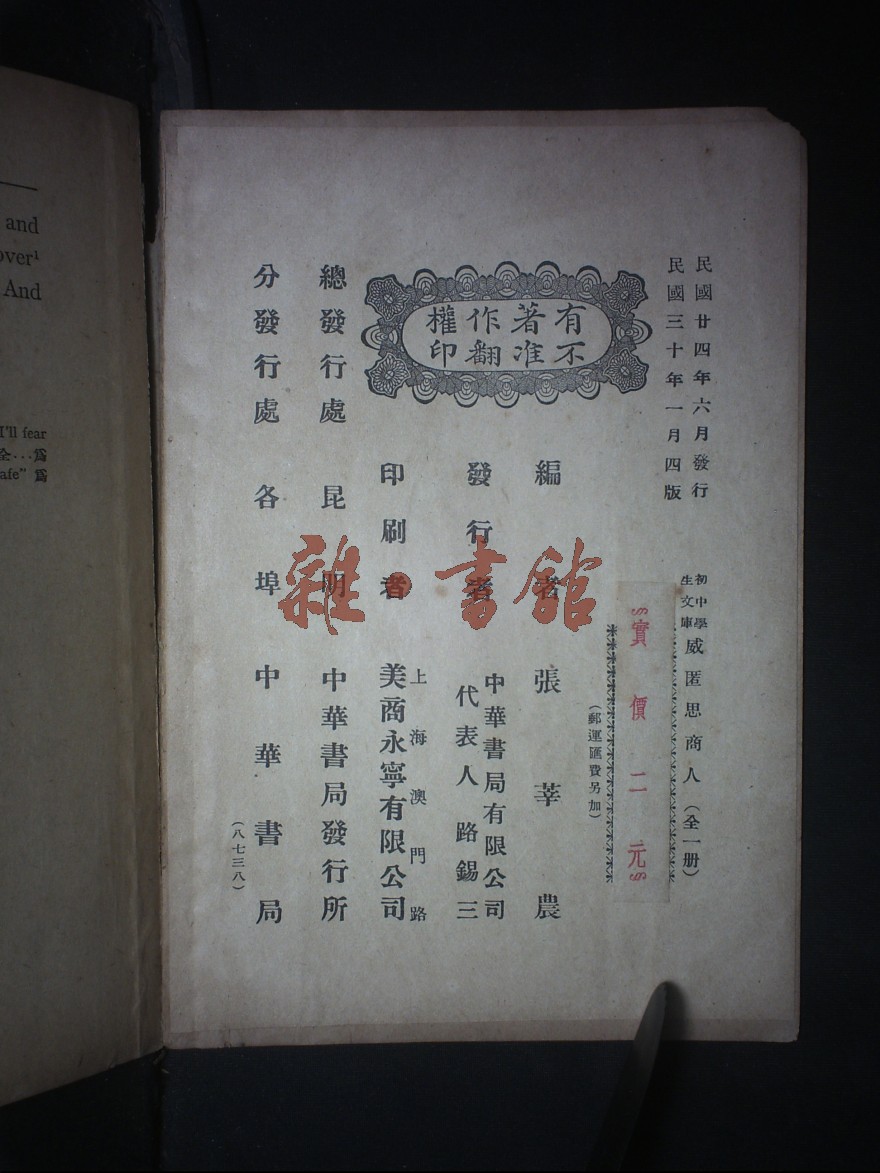 民國廿四年六月發行
民國三十年一月四版
初中學
生文庫
威匿思商人（全一册）
實價二元
（郵運匯費另加）
有著作權
不准翻印
編者 張莘農
發行者 中華書局有限公司
代表人 路錫三
印刷者 上海澳門路
美商永寧有限公司
總發行處 昆明 中華書局發行所
分發行處 各埠中華書局
（八七三八）
雜·書館
and
over¹
And
I'll fear
全...爲
afe" 爲